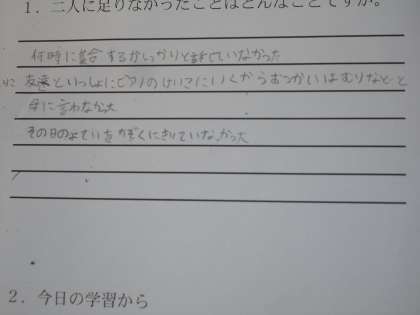 1. 二人に足りなかったことはどんなことですか。
何時に集合するかしっかりと話していなかった
友達といっしょにピアノのけいこにいくからむつかいはむりなどと
母に言わなかった
その日のよていをかぞくにきいていなかった
2. 今日の学習から